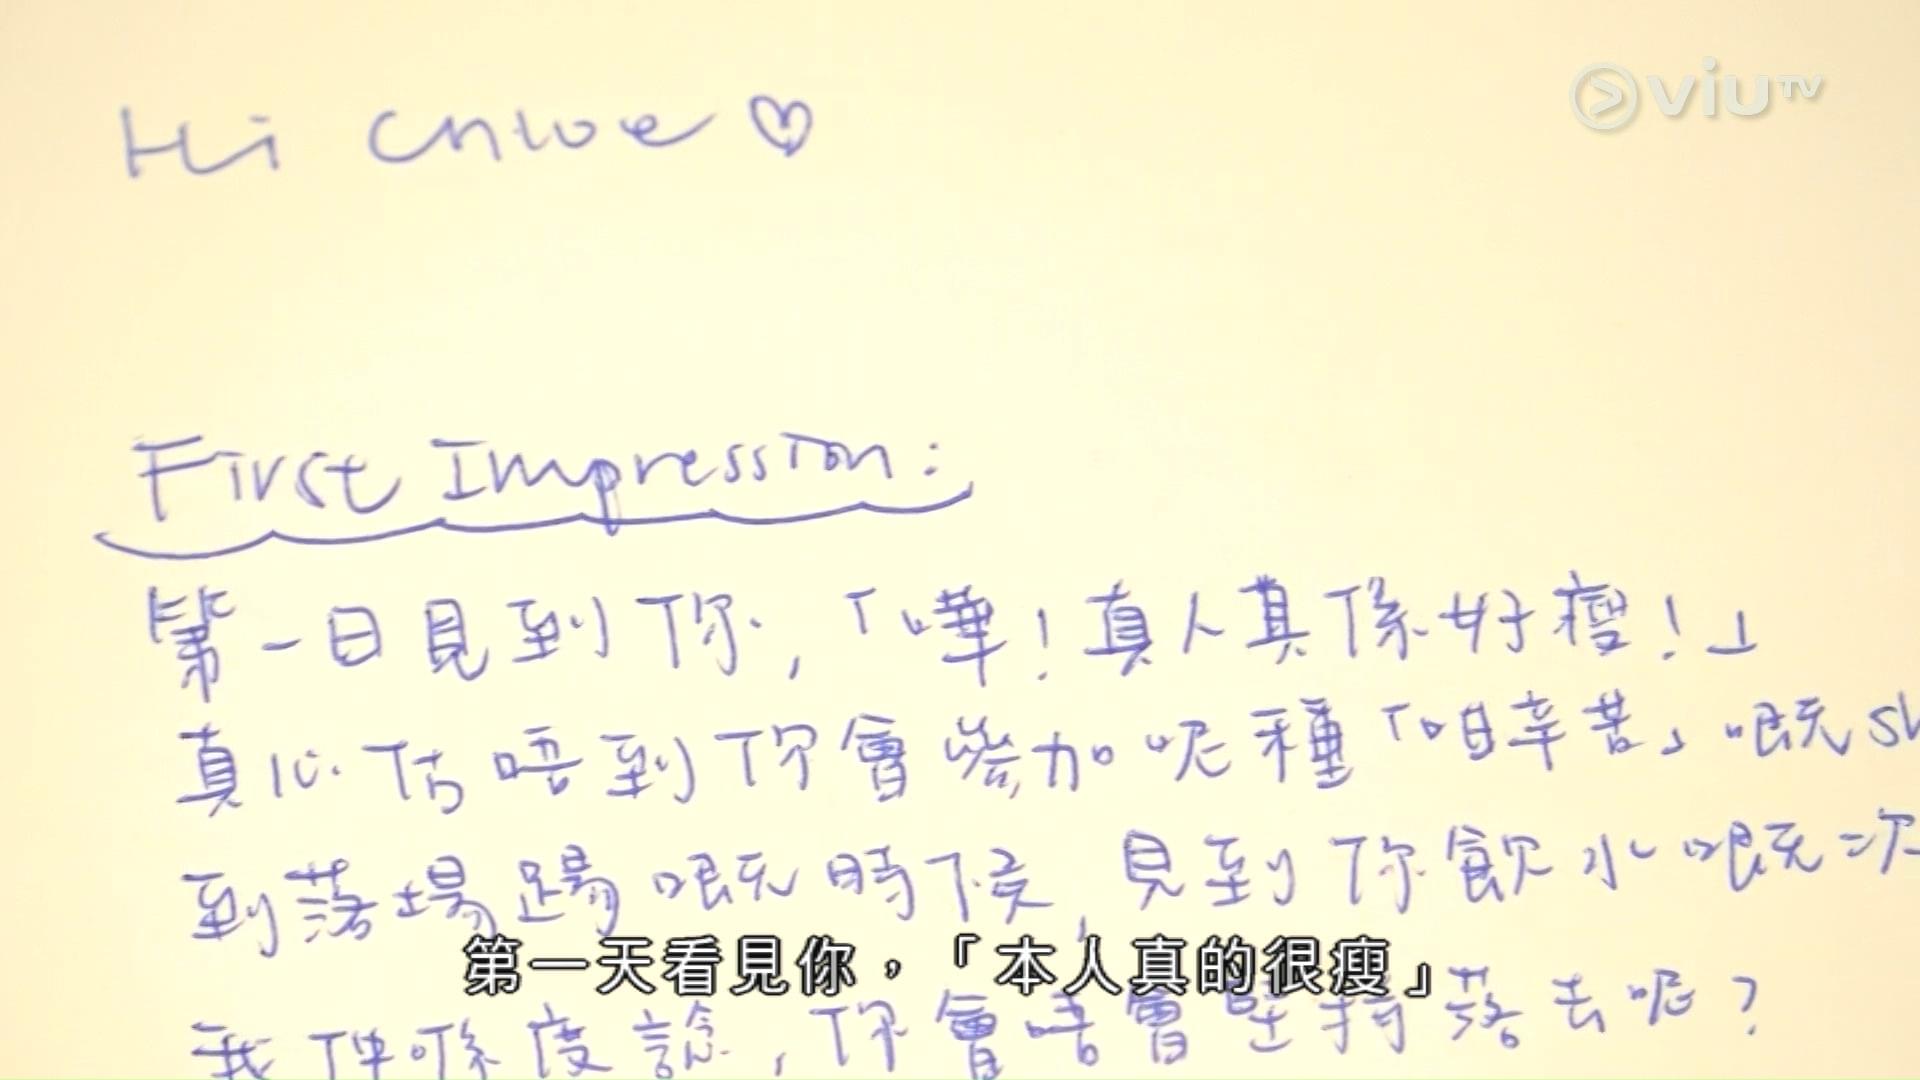 viuTV
Hi Chloe
First Impression:
第一日見到你,「嘩!真人真係好瘦!」
真心估唔到你會參加呢種「咁辛苦」嘅sh
到落場踢嘅時候,見到你飲水嘅次
第一天看見你,「本人真的很瘦」
我哋喺度諗,你會唔會堅持落去呢?